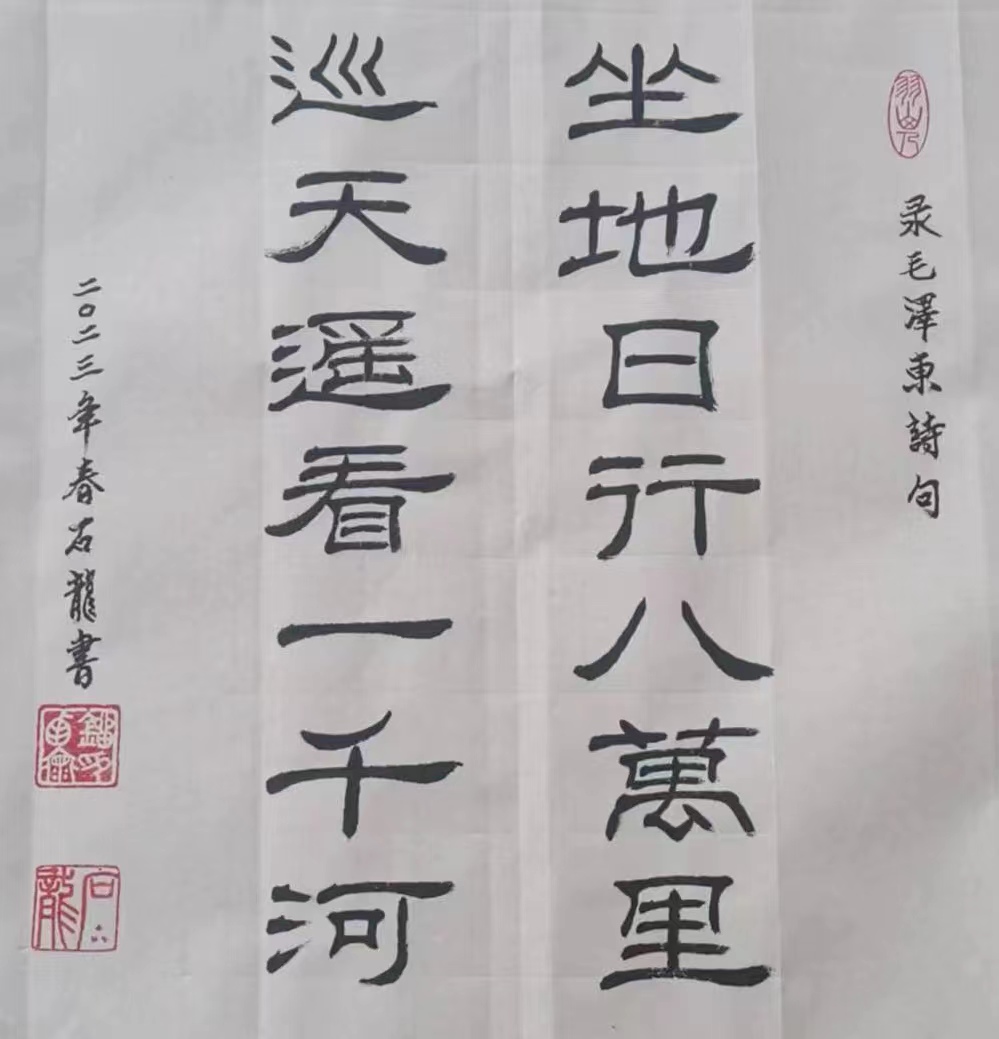 录毛澤东詩句
坐地日行八萬里
巡天遥看一千河
二〇二三年春石龍書
石龍